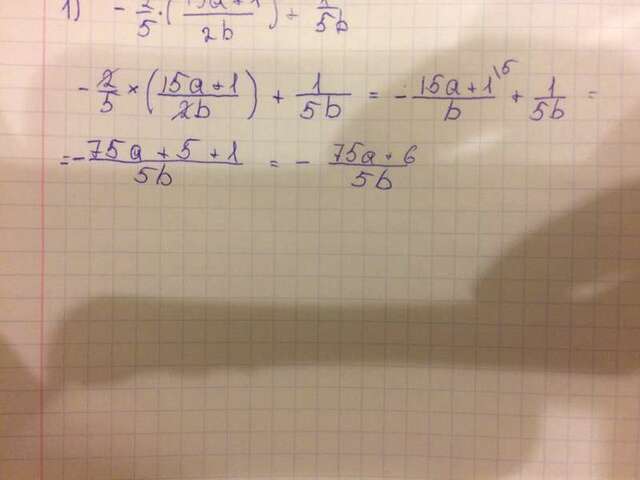 1) -2/5 · (15a+1 / 2b) + 1/5b
-2/5 × (15a+1 / 2b) + 1/5b = - 15a+1 \5 / b + 1/5b =
= - 75a+5+1 / 5b = - 75a+6 / 5b